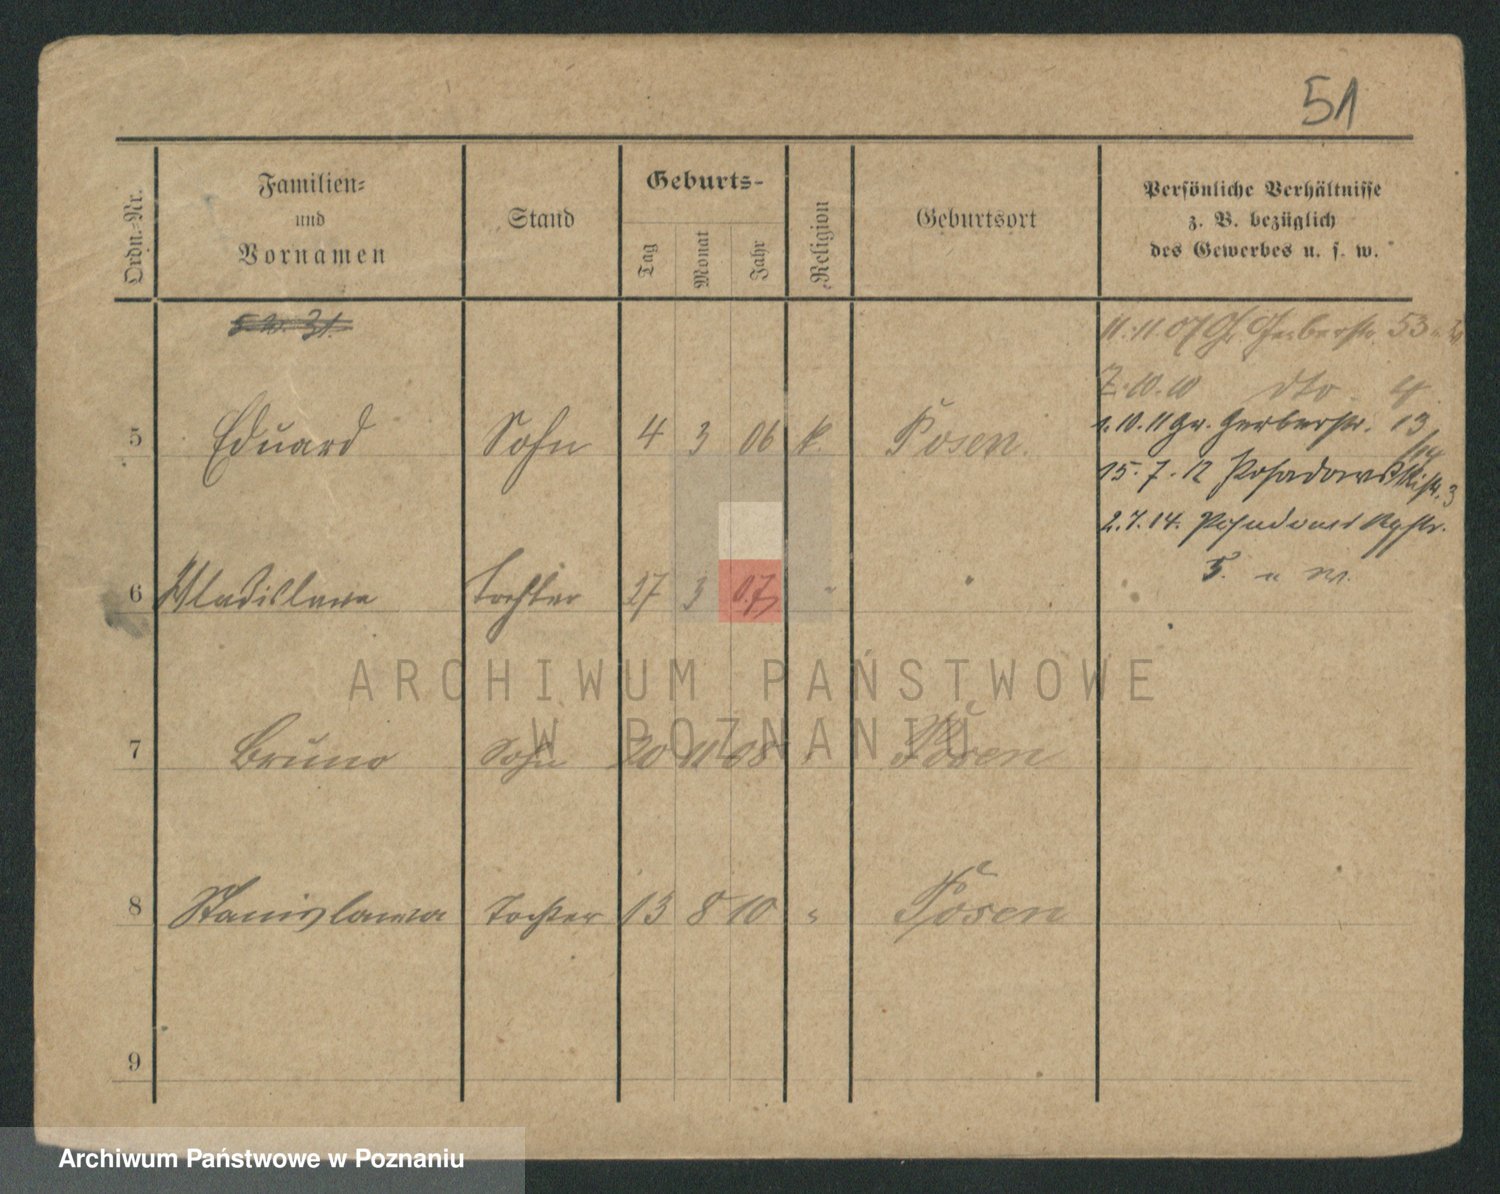 51
Ordn.-Nr.
Familien-
und
Vornamen
Stand
Geburts-
Tag
Monat
Jahr
Religion
Geburtsort
Persönliche Verhältnisse
z. B. bezüglich
des Gewerbes u. s. w.
11.11.07 Gr. Gerberstr. 53
7.10.10 dto 4.
5 Eduard Sohn 4 3 06 k. Posen.
1.10.11 Gr. Gerberstr. 13
15.7.12 Posadowskistr. 3
2.7.14.
6 Wladislawa Tochter 27 3 07 "
5.
7 Bruno Sohn 20 11 08 " Posen
8 Stanislawa Tochter 13 8 10 " Posen
9
ARCHIWUM PAŃSTWOWE
W POZNANIU
Archiwum Państwowe w Poznaniu